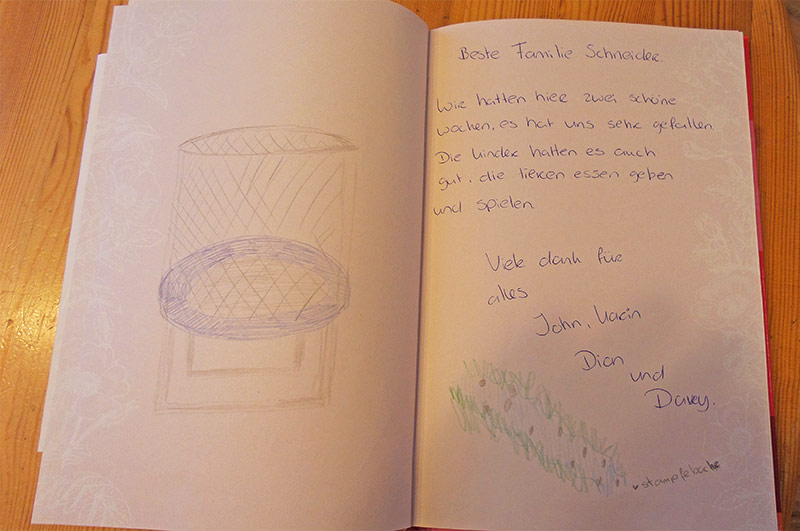 Beste Familie Schneider.
Wir hatten hier zwei schöne
wochen, es hat uns sehr gefallen.
Die kinder hatten es auch
gut, die tieren essen geben
und spielen
Viele dank für
alles
John, Karin
Dion
und
Davey.